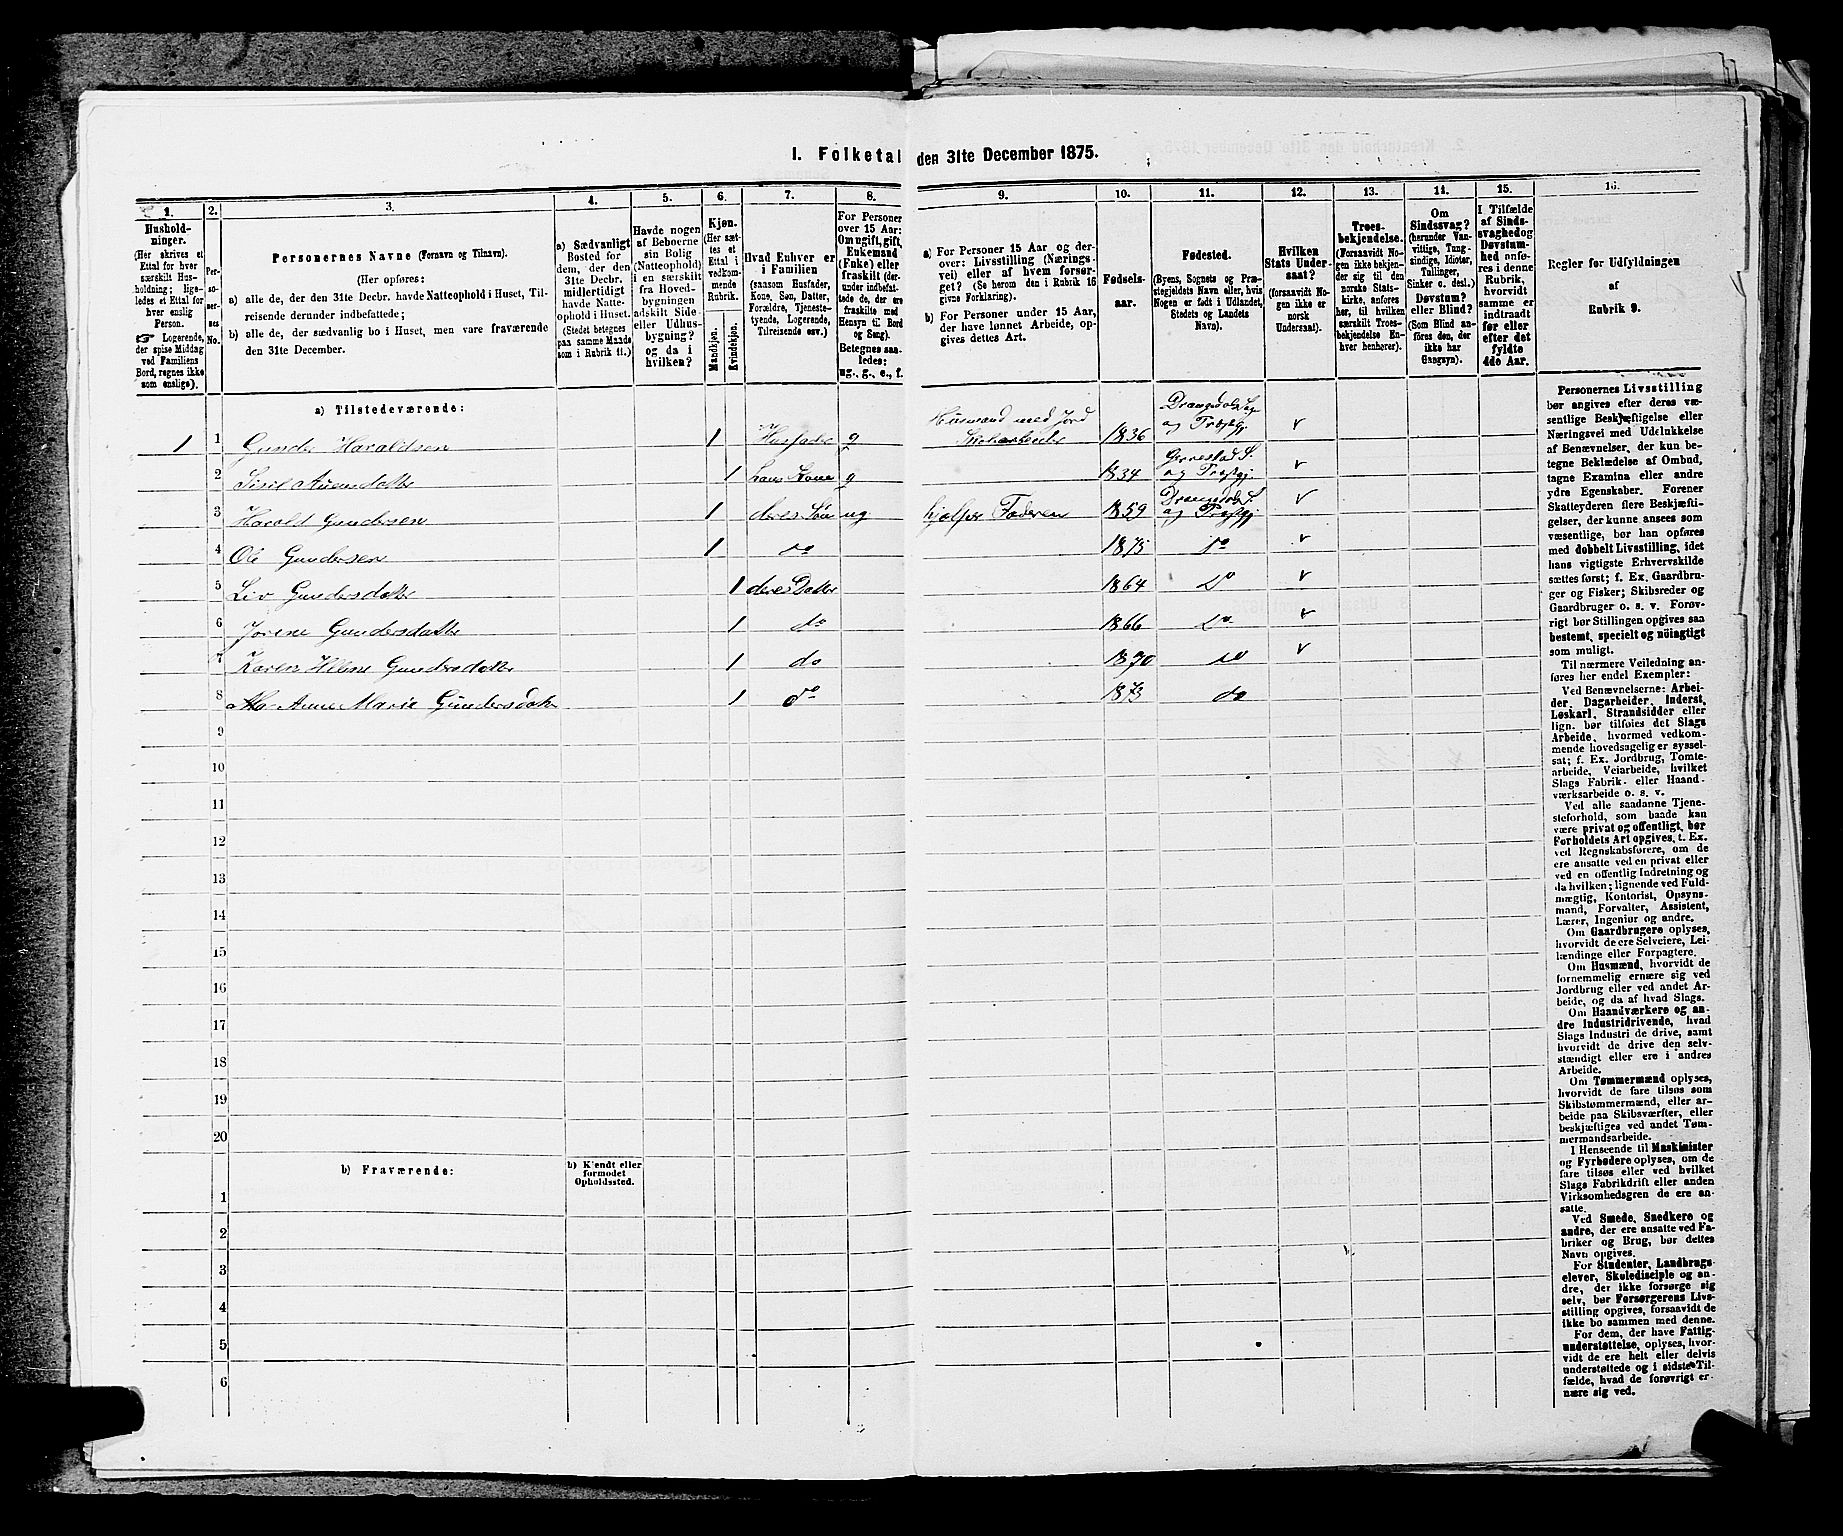 I. Folketal den 31te December 1875.
1.
Husholdninger.
(Her skrives et
Ettal for hver
særskilt Husholdning; ligeledes
et Ettal for
hver enslig
Person.
☞ Logerende,
der spise Middag
ved Familiens
Bord, regnes ikke
som enslige).
2.
Personernes No.
3.
Personernes Navne (Fornavn og Tilnavn).
(Her opføres:
a) alle de, der den 31te Decbr. havde Natteophold i Huset, Tilreisende
derunder indbefattede;
b) alle de, der sædvanlig bo i Huset, men vare fraværende
den 31te December.
4.
a) Sædvanligt
Bosted for
dem, der den
31te Decbr.
midlertidigt
havde Natteophold
i Huset.
(Stedet betegnes
paa samme Maade
som i Rubrik 11.)
5.
Havde nogen
af Beboerne
sin Bolig
(Natteophold)
i en særskilt
fra Hovedbygningen
adskilt Side-
eller Udhusbygning?
og da i
hvilken?
6.
Kjøn.
(Her sættes
et
Ettal i
vedkommende
Rubrik.
Mandkjøn.
Kvindekjøn.
7.
Hvad Enhver er
i Familien
(saasom Husfader,
Kone, Søn, Datter,
Forældre, Tjenestetyende,
Logerende,
Tilreisende osv.)
8.
For Personer
over 15 Aar:
Om ugift, gift,
Enkemand
(Enke) eller
fraskilt (derunder
indbefattede
de, der ere
fraskilte med
Hensyn til Bord
og Seng).
Betegnes saaledes:
ug., g., e., f.
9.
a) For Personer 15 Aar og derover:
Livsstilling (Næringsvei)
eller af hvem forsørget?
(Se herom den i Rubrik 16
givne Forklaring).
b) For Personer under 15 Aar,
der have lønnet Arbeide, opgives
dettes Art.
10.
Fødselsaar.
11.
Fødested.
(Byens, Sognets og Præstegjeldets
Navn eller, hvis
Nogen er født i Udlandet,
Stedets og Landets
Navn).
12.
Hvilken
Stats Undersaat?
(forsaavidt Nogen
ikke er
norsk
Undersaat).
13.
Troesbekjendelse.
(Forsaavidt Nogen
ikke bekjender
sig til den
norske Statskirke,
anføres
her, til hvilken
særskilt Troesbekjendelse
Enhver
henhører).
14.
Om
Sindssvag?
(herunder Vanvittige,
Tungsindige,
Idioter,
Tullinger,
Sinker o. desl.)
Døvstum?
eller Blind?
(Som Blind anføres
den, der
ikke har
Gangsyn).
15.
I Tilfælde
af Sindssvaghed
og
Døvstumhed
anføres
i denne
Rubrik,
hvorvidt
samme er
indtraadt
før eller
efter det
fyldte
4de Aar.
16.
Regler for Udfyldningen
af
Rubrik 9.
a) Tilstedeværende:
1 1 Gunder Haraldsen 1 Husfader g Husmand med Jord 1836 Drangedals Sogn og Præstgj v
2 Sisil Auensdatter 1 hans Kone g 1834 Gjerrestad S. og Præstgj v
3 Harold Gundersen 1 deres Søn ug hjælper Faderen 1859 Drangedals S. og Præstgj v
4 Ole Gundersen 1 do 1875 do v
5 Liv Gundersdatter 1 deres Datter 1864 do v
6 Jorene Gundersdatter 1 do 1866 do v
7 Karen Heline Gundersdatter 1 do 1870 do v
8 Anne Marie Gundersdatter 1 do 1873 do
9
10
11
12
13
14
15
16
17
18
19
20
b) Fraværende:
b) Kjendt eller
formodet
Opholdssted.
1
2
3
4
5
6
Personernes Livsstilling
bør angives efter deres væsentlige
Beskjæftigelse eller
Næringsvei med Udelukkelse
af Benævnelser, der kun betegne
Beklædelse af Ombud,
tagne Examina eller andre
ydre Egenskaber. Forener
Skatteyderen flere Beskjæftigelser,
der kunne ansees som
væsentlige, bør han opføres
med dobbelt Livsstilling, idet
hans vigtigste Erhvervskilde
sættes først; f. Ex. Gaardbruger
og Fisker; Skibsreder og
Gaardbruger o. s. v. Forøvrigt
bør Stillingen opgives saa
bestemt, specielt og nöiagtigt
som muligt.
Til nærmere Veiledning anføres
her endel Exempler:
Ved Benævnelserne: Arbeider,
Dagarbeider, Inderst,
Løskarl, Strandsidder eller
lign. bør tilføies det Slags
Arbeide, hvormed vedkommende
hovedsagelig er sysselsat;
f. Ex. Jordbrug, Tomtearbeide,
Veiarbeide, hvilket
Slags Fabrik- eller Haandværksarbeide
o. s. v.
Ved alle saadanne Tjenesteforhold,
som baade kan
være privat og offentligt, bør
Forholdets Art opgives, f. Ex.
ved Regnskabsførere, om de
ere ansatte ved en privat eller
ved en offentlig Indretning og
da hvilken; lignende ved Fuldmægtig,
Kontorist, Opsynsmand,
Forvalter, Assistent,
Lærer, Ingeniør og andre.
Om Gaardbrugere oplyses,
hvorvidt de ere Selveiere, Leilændinge
eller Forpagtere.
Om Husmænd, hvorvidt de
fornemmelig ernære sig ved
Jordbrug eller ved andet Arbeide,
og da af hvad Slags.
Om Haandværkere og andre
Industridrivende, hvad
Slags Industri de drive, samt
hvorvidt de drive den selvstændigt
eller ere i andres
Arbeide.
Om Tømmermænd oplyses,
hvorvidt de fare tilsøs som
Skibstømmermænd, eller arbeide
paa Skibsværfter, eller
beskjæftiges ved andet Tømmermandsarbeide.
I Henseende til Maskinister
og Fyrbødere oplyses, om de
fare tilsøs eller ved hvilket
Slags Fabrikdrift eller anden
Virksomhedsgren de ere ansatte.
Ved Smede, Snedkere og
andre, der ere ansatte ved Fabriker
og Brug, bør dettes
Navn opgives.
For Studenter, Landbrugselever,
Skoledisciple og andre,
der ikke forsørge sig
selv, bør Forsørgerens Livsstilling
opgives, forsaavidt de
ikke bo sammen med denne.
For dem, der have Fattigunderstøttelse,
oplyses, hvorvidt
de ere helt eller delvis
understøttede og i sidste Tilfælde,
hvad de forøvrigt ernære
sig ved.